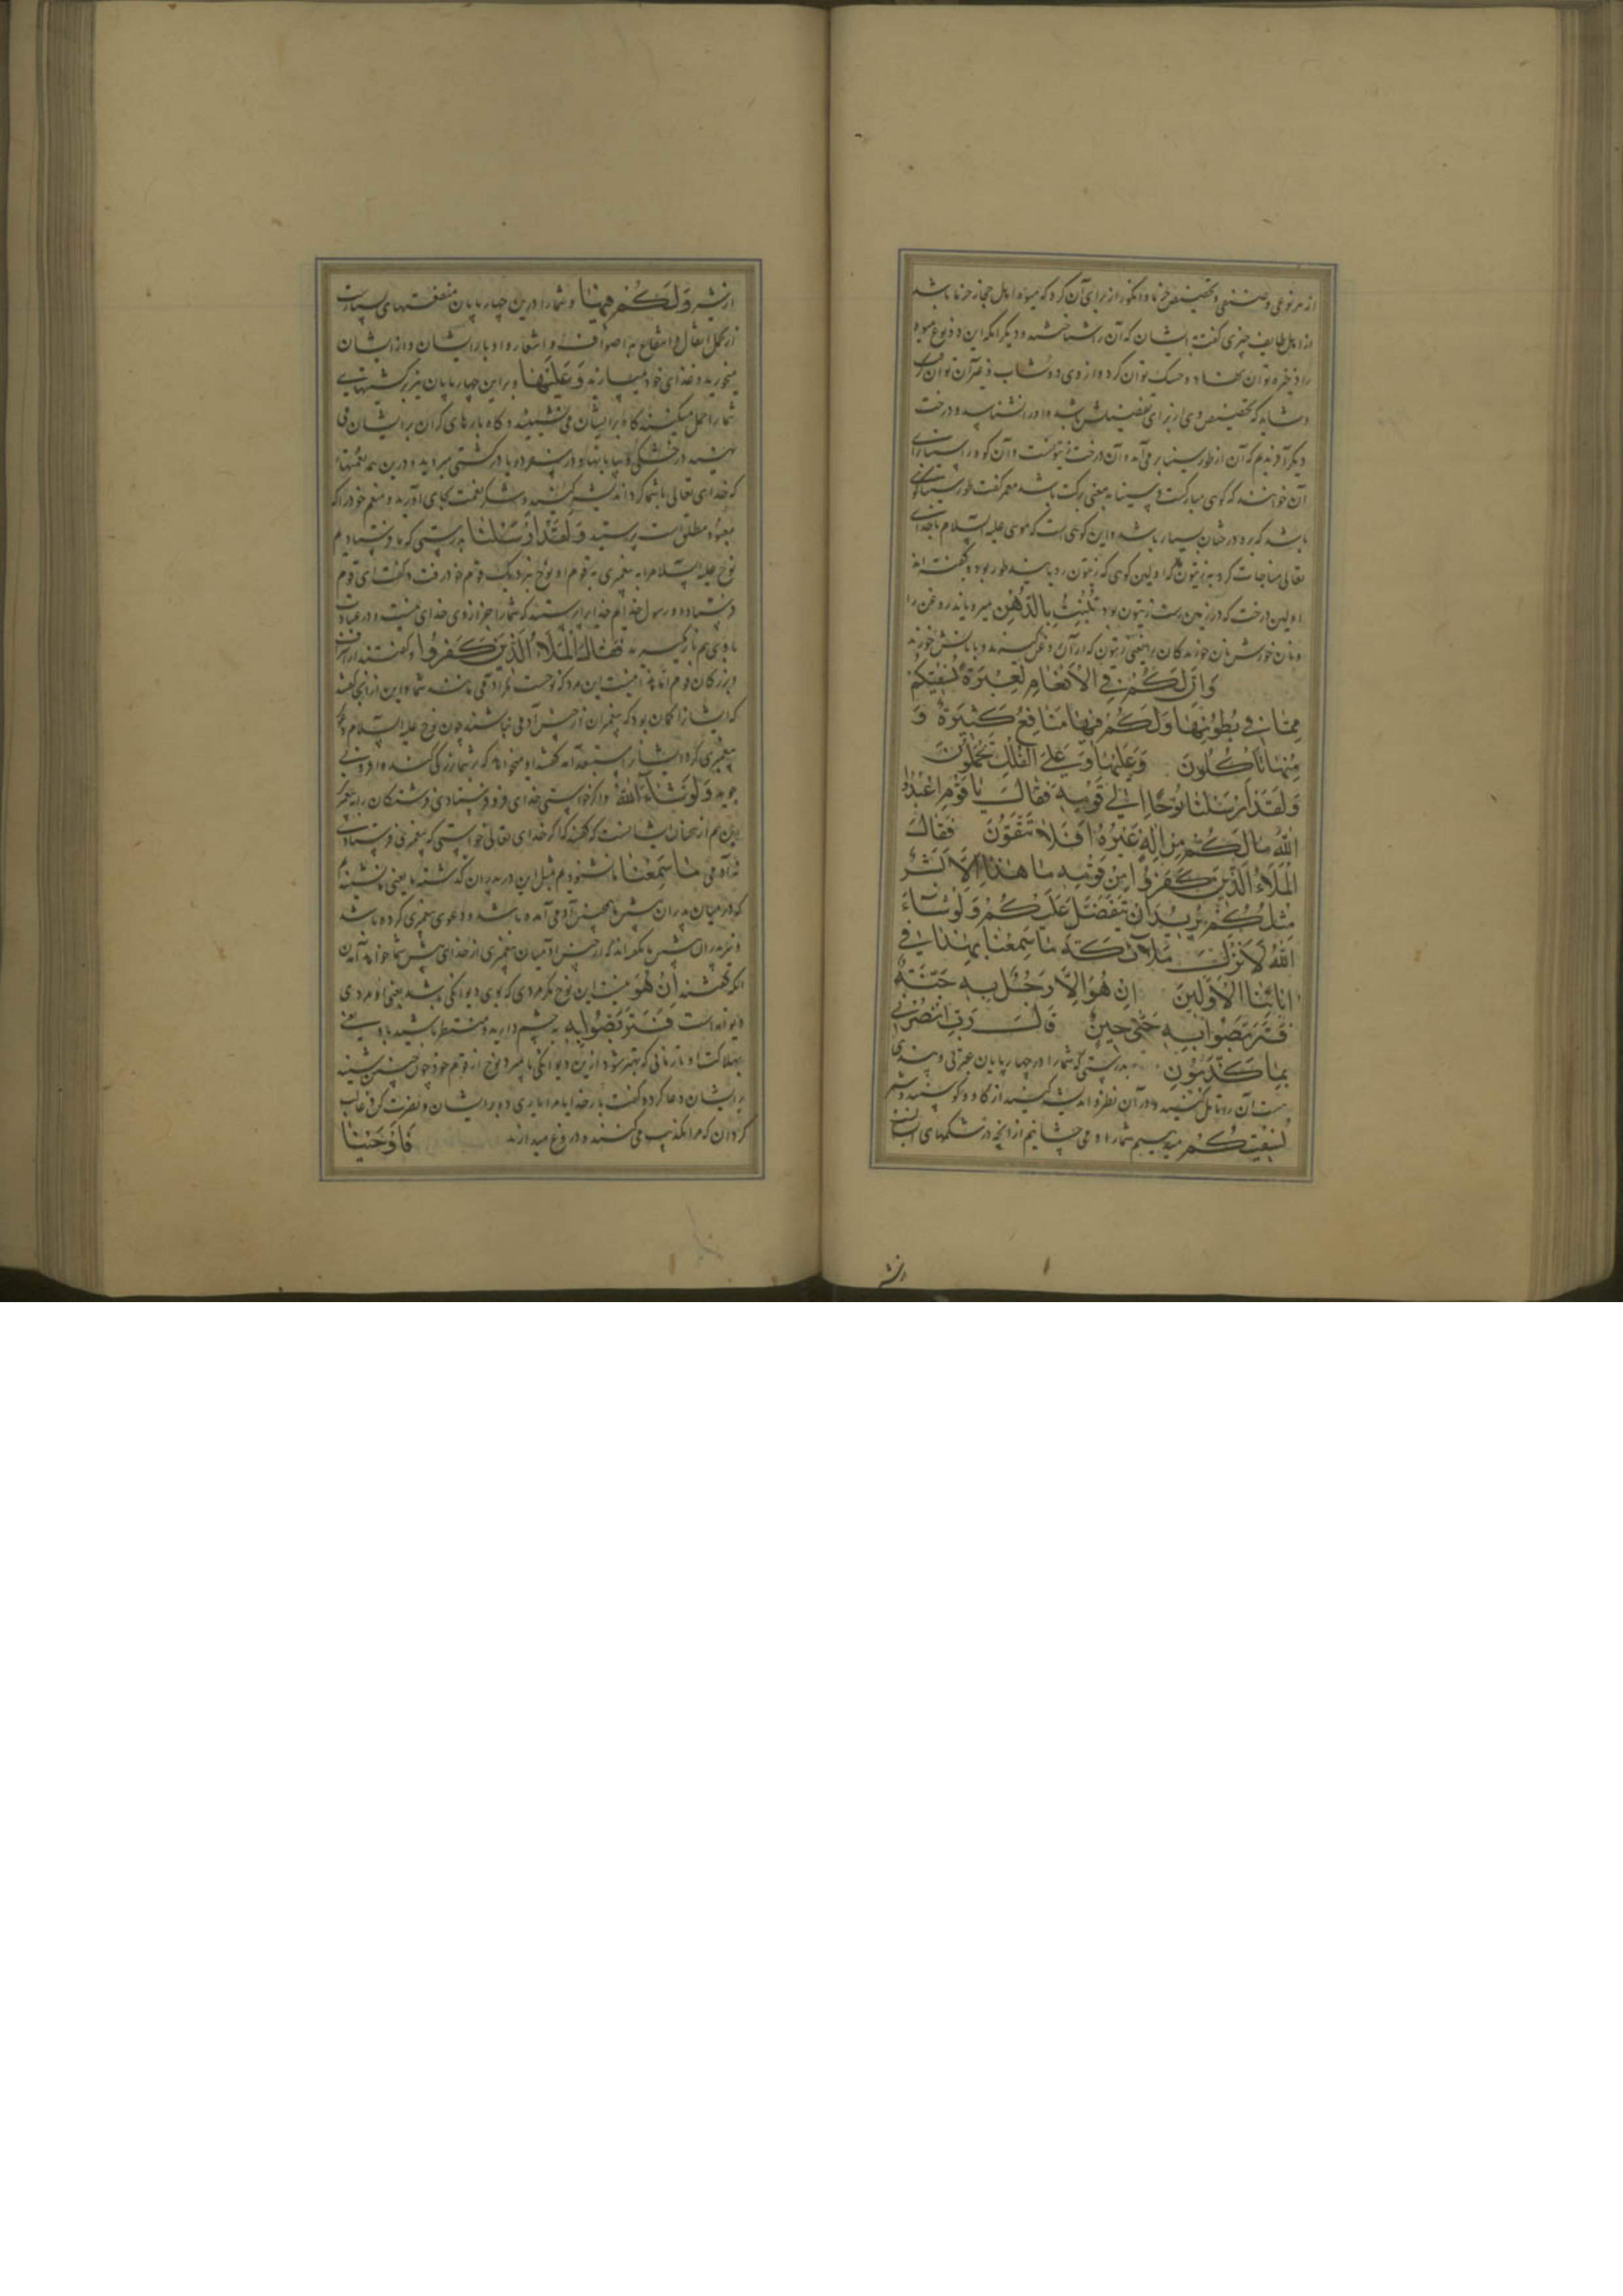 از هر نوعی و صنفی و تخصیص خرما و انگور از برای آن کرد که میوه اهل حجاز خرما باشد
و از اهل طایف چیزی گفت بایشان که آن را شناختند و دیگر آنکه این دو نوع میوه
را ذخیره توان نهاد و خشک توان کرد و از وی دوشاب و غیر آن توان
و شاید که تخصیص وی از برای باشد و درخت
دیگر آفریدیم که آن از طور سینا بر می‌آید و آن درخت زیتونست و آن کوه را
آن خوانند که کوهی مبارکست و سینا به معنی برکت باشد معمر گفت طور سینا کوهی
باشد که بر او درختان بسیار باشد و این کوهی است که موسی علیه السلام با خدای
تعالی مناجات کرد اولین کوهی که زیتون رویانید طور بود و گفته‌اند
اولین درخت که در زمین رست زیتون بود تَنْبُتُ بِالدُّهْنِ میرویاند روغن را
و نان خورش نان خورندگان را یعنی زیتون که از آن روغن گیرند و با نانش خورند
وَاِنَّ لَكُمْ فِي الْاَنْعَامِ لَعِبْرَةً نُسْقِيكُمْ
مِمَّا فِي بُطُونِهَا وَلَكُمْ فِيهَا مَنَافِعُ كَثِيرَةٌ وَ
مِنْهَا تَأْكُلُونَ وَعَلَيْهَا وَعَلَى الْفُلْكِ تُحْمَلُونَ
وَلَقَدْ اَرْسَلْنَا نُوحًا اِلٰى قَوْمِهِ فَقَالَ يَا قَوْمِ اعْبُدُوا
اللّٰهَ مَا لَكُمْ مِنْ اِلٰهٍ غَيْرُهُ اَفَلَا تَتَّقُونَ فَقَالَ
الْمَلَاُ الَّذِينَ كَفَرُوا مِنْ قَوْمِهِ مَا هٰذَا اِلَّا بَشَرٌ
مِثْلُكُمْ يُرِيدُ اَنْ يَتَفَضَّلَ عَلَيْكُمْ وَلَوْ شَاءَ
اللّٰهُ لَاَنْزَلَ مَلَائِكَةً مَا سَمِعْنَا بِهٰذَا فِي
اٰبَائِنَا الْاَوَّلِينَ اِنْ هُوَ اِلَّا رَجُلٌ بِهِ جِنَّةٌ
فَتَرَبَّصُوا بِهِ حَتّٰى حِينٍ قَالَ رَبِّ انْصُرْنِي
بِمَا كَذَّبُونِ بدرستی که شما را در چهارپایان عبرتی و پندی
است آن را تامل کنید و در آن نظر و اندیشه کنید از گاو و گوسفند و شتر
نُسْقِيكُمْ میدهیم شما را و می‌چشانیم از آنچه در شکمهای ایشان
از شیر وَلَكُمْ فِيهَا و شما را درین چهارپایان منفعتهای بسیارست
از حمل اثقال و انتفاع به اصواف و اشعار و اوبار ایشان و از ایشان
میخورید و غذای خود میسازید وَعَلَيْهَا و بر این چهارپایان نیز بر کشتیهای
شما را حمل میکنند گاه بر ایشان می‌نشینید و گاه بارهای گران بر ایشان می
نهید در خشکی و بیابانها و در و دریا در کشتی میروید و درین همه نعمتها
که خدای تعالی با شما کرد اندیشه کنید و شکر نعمت بجای آورید و منعم خود را که
معبود مطلق است پرستید وَلَقَدْ اَرْسَلْنَا بدرستی که ما فرستادیم
نوح علیه السلام را به پیغمبری به قوم او نوح نزدیک قوم خود رفت و گفت ای قوم
فرستاده و رسول خدایم خدای را پرستید که شما را جز از وی خدای نیست و در عبادت
با وی هم باز مگیرید فَقَالَ الْمَلَاُ الَّذِينَ كَفَرُوا و گفتند اشراف
و بزرگان قوم نیست این مرد که نوحست مگر آدمی مانند شما و این از آن گفتند
که ایشان را گمان بود که پیغمبران از جنس آدمی نباشند چون نوح علیه السلام دعوی
پیغمبری کرد ایشان را استبعاد آمد گفتند او میخواهد که بر شما بزرگی کند و افزونی
جوید وَلَوْ شَاءَ اللّٰهُ و اگر خواستی خدای فرو فرستادی فرشتگان را به پیغمبر
این هم از سخنان ایشانست که گفتند که اگر خدای تعالی خواستی که پیغمبری فرستادی
نه آدمی مَا سَمِعْنَا ما نشنودیم مثل این در پدران گذشته ما یعنی نشنیدیم
که در میان پدران پیش ما هیچ آدمی آمده باشد و دعوی پیغمبری کرده باشد
و نیز پدران پیش ما نگفته‌اند که از جنس آدمیان پیغمبری از خدای پیش شما خواهد آمدن
دیگر گفتند اِنْ هُوَ نیست این نوح مگر مردی که بوی دیوانگی باشد یعنی او مردی
دیوانه است فَتَرَبَّصُوا بِهِ چشم دارید و منتظر باشید
بهلاکت او تا زمانی که بهتر شود ازین دیوانگی یا بمیرد نوح از قوم خود چون چنین شنید
بر ایشان دعا کرد و گفت بار خدایا مرا یاری ده بر ایشان و نصرت کن و غالب
گردان که مرا تکذیب می‌کنند و دروغ میدارند فَاَوْحَيْنَا